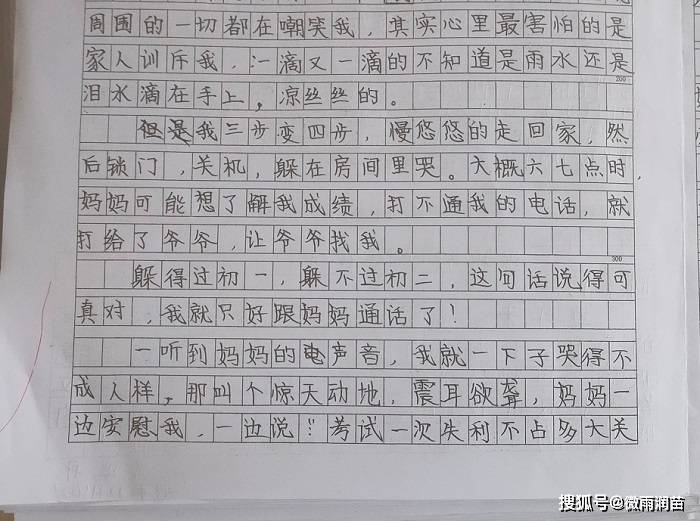 周围的一切都在嘲笑我，其实心里最害怕的是
家人训斥我，一滴又一滴的不知道是雨水还是
200
泪水滴在手上，凉丝丝的。
但是我三步变四步，慢悠悠的走回家，然
后锁门，关机，躲在房间里哭。大概六七点时，
妈妈可能想了解我成绩，打不通我的电话，就
打给了爷爷，让爷爷找我。
300
躲得过初一，躲不过初二，这句话说得可
真对，我就只好跟妈妈通话了！
一听到妈妈的声音，我就一下子哭得不
成人样，那叫个惊天动地，震耳欲聋，妈妈一
边安慰我，一边说：“考试一次失利不占多大关
搜狐号@微雨润苗